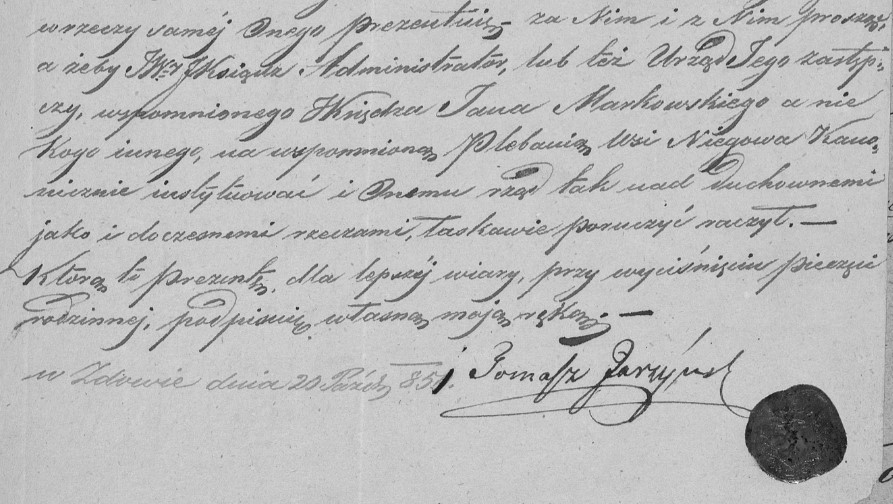 w rzeczy saméj Onego prezentuię – za Nim i z Nim prosząc,
a żeby JWny JXsiądz Administrator, lub też Urząd Jego zastęp-
czy, wspomnionego JXiędza Jana Markowskiego a nie
kogo innego, na wspomnioną Plebanią Wsi Niegowa Kano-
nicznie instytuować i Onemu rząd tak nad duchownemi
jako i doczesnemi rzeczami, łaskawie poruczyć raczył. —
Którą to prezentę, dla lepszéj wiary, przy wyciśnięciu pieczęci
rodzinnej, podpisuię własną moją ręką. —
w Zdowie dnia 20 Paźdz 851.
Tomasz